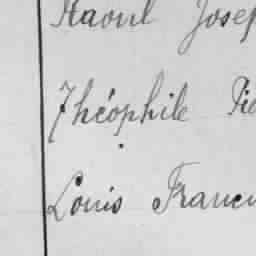 Raoul Josep
Théophile Pie
Louis Franci